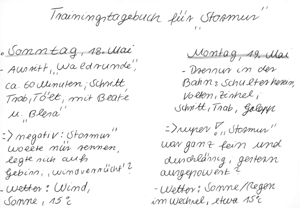 Trainingstagebuch für "Stormur"
Sonntag, 18. Mai
- Ausritt, "Waldrunde",
ca 60 Minuten, Schritt,
Trab, Tölt, mit Beate
u. "Blesa"
=> negativ: "Stormur"
wollte nur rennen,
legte sich aufs
Gebiss, "windverrückt"?
- Wetter: Wind,
Sonne, 15°C
Montag, 19. Mai
- Dressur in der
Bahn: Schulterherein,
Volten, Zirkel,
Schritt, Trab, Galopp
=> super! "Stormur"
war ganz fein und
durchlässig, gestern
ausgepowert?
- Wetter: Sonne/Regen
im Wechsel, etwa 15°C